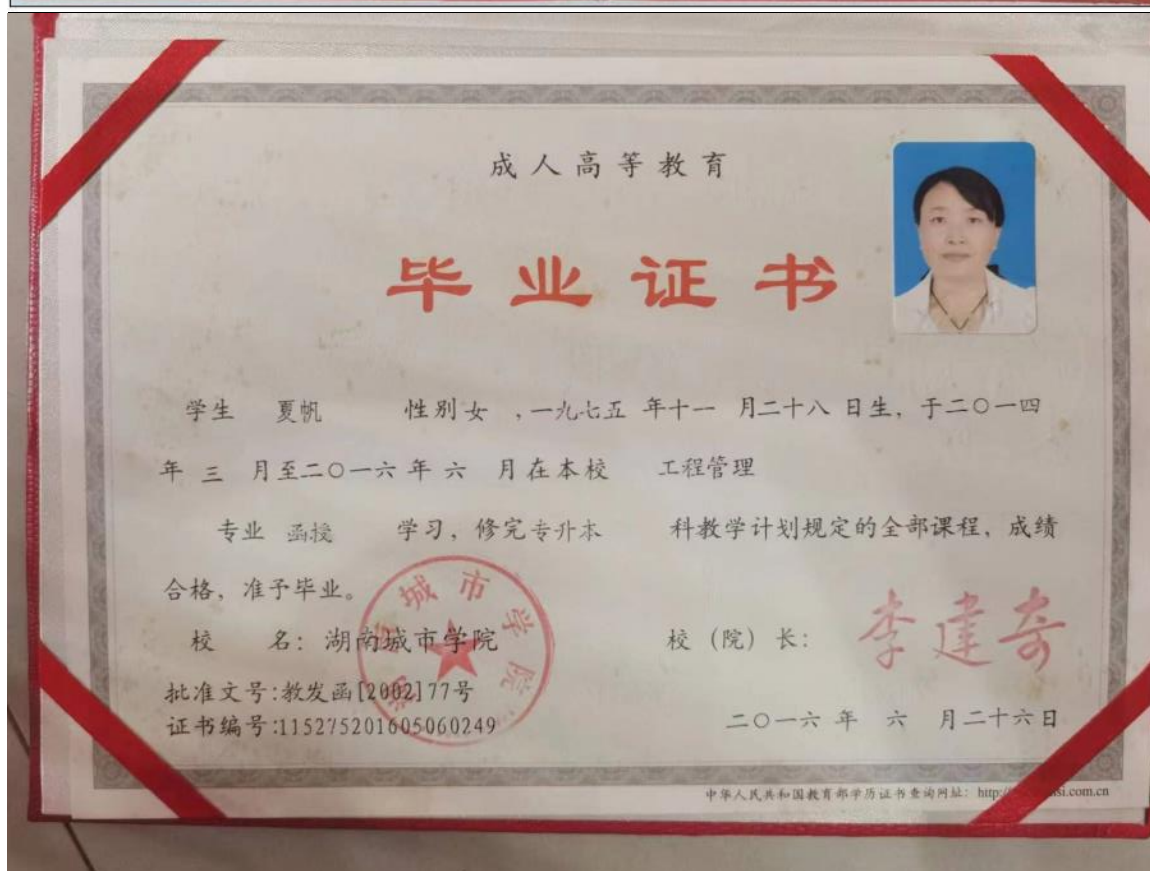 成人高等教育
毕业证书
学生 夏帆 性别女 ,一九七五 年十一 月二十八 日生, 于二〇一四
年 三 月至二〇一六 年 六 月在本校 工程管理
专业 函授 学习, 修完专升本 科教学计划规定的全部课程, 成绩
合格, 准予毕业。
校 名: 湖南城市学院 校 (院) 长: 李建奇
批准文号:教发函[2002]77号
证书编号:115275201605060249
二〇一六 年 六 月二十六日
中华人民共和国教育部学历证书查询网址: http:/ si.com.cn
城市学院